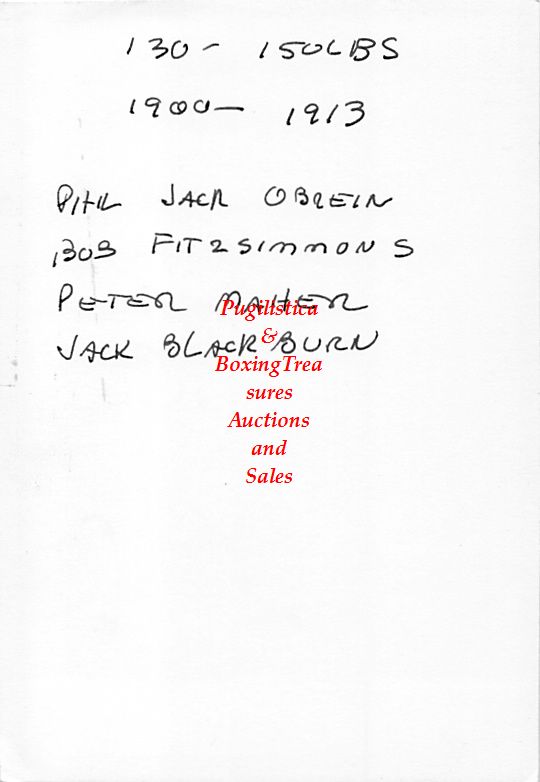 130 - 150LBS
1900 - 1913
PHIL JACK OBREIN
BOB FITZSIMMONS
PETER MAHER
JACK BLACKBURN
Pugilistica
&
BoxingTrea
sures
Auctions
and
Sales